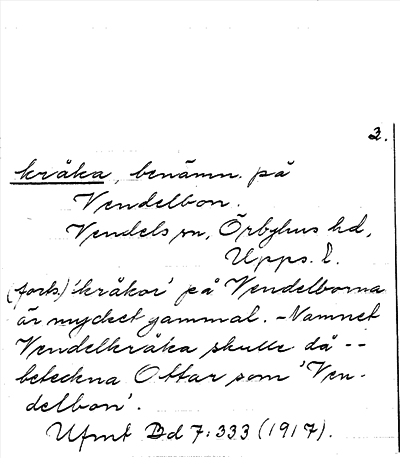 2.
kråka, benämn. på
Vendelbon.
Vendels sn, Örbyhus hd,
Upps. l.
(forts.) 'kråkor' på Vendelborna
är mycket gammal. - Namnet
Vendelkråka skulle då --
beteckna Ottar som 'Ven-
delbon'.
Ufmt Bd 7:333 (1917).